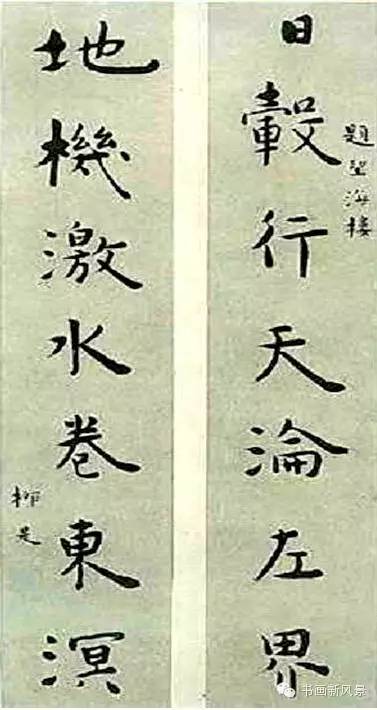 題望海樓
日轂行天淪左界
地機激水卷東溟
柳是
书画新风景